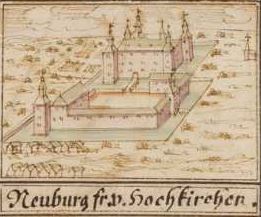 Neuburg fr. v. Hochkirchen.